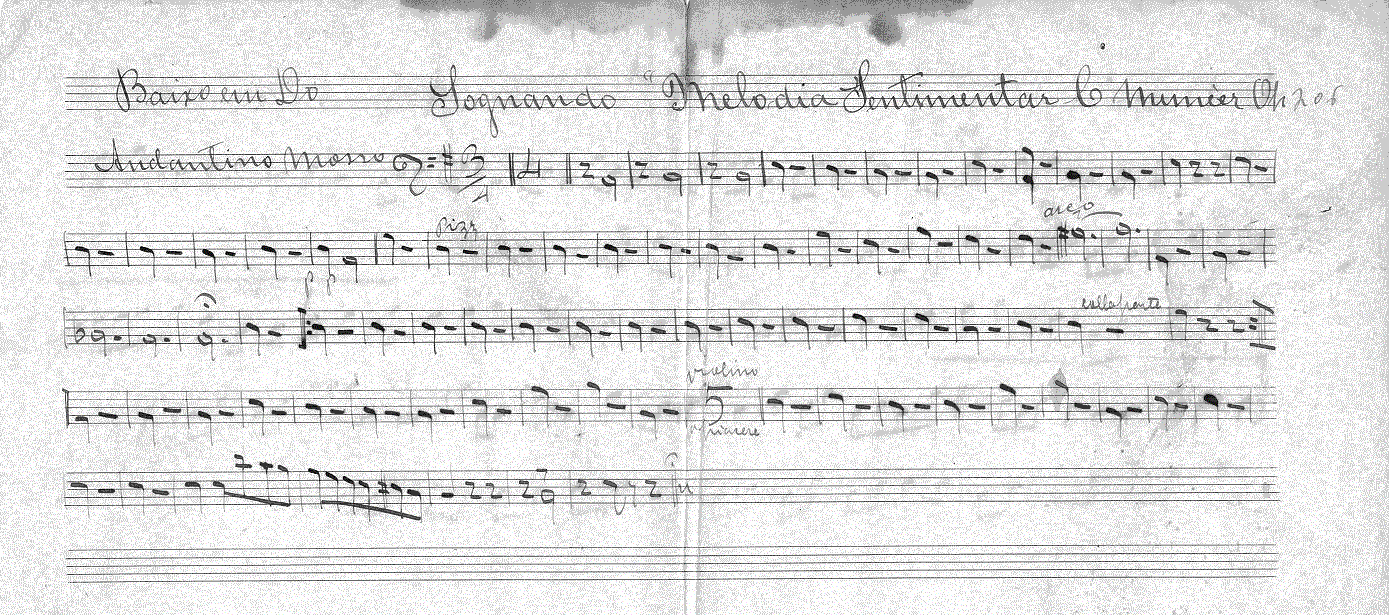 Baixo em Do Sognando " Melodia Sentimentar C Munier Op 208
Andantino Mosso 3 4 4
pizz arco
pp
colla parte
violino
5
a piacere